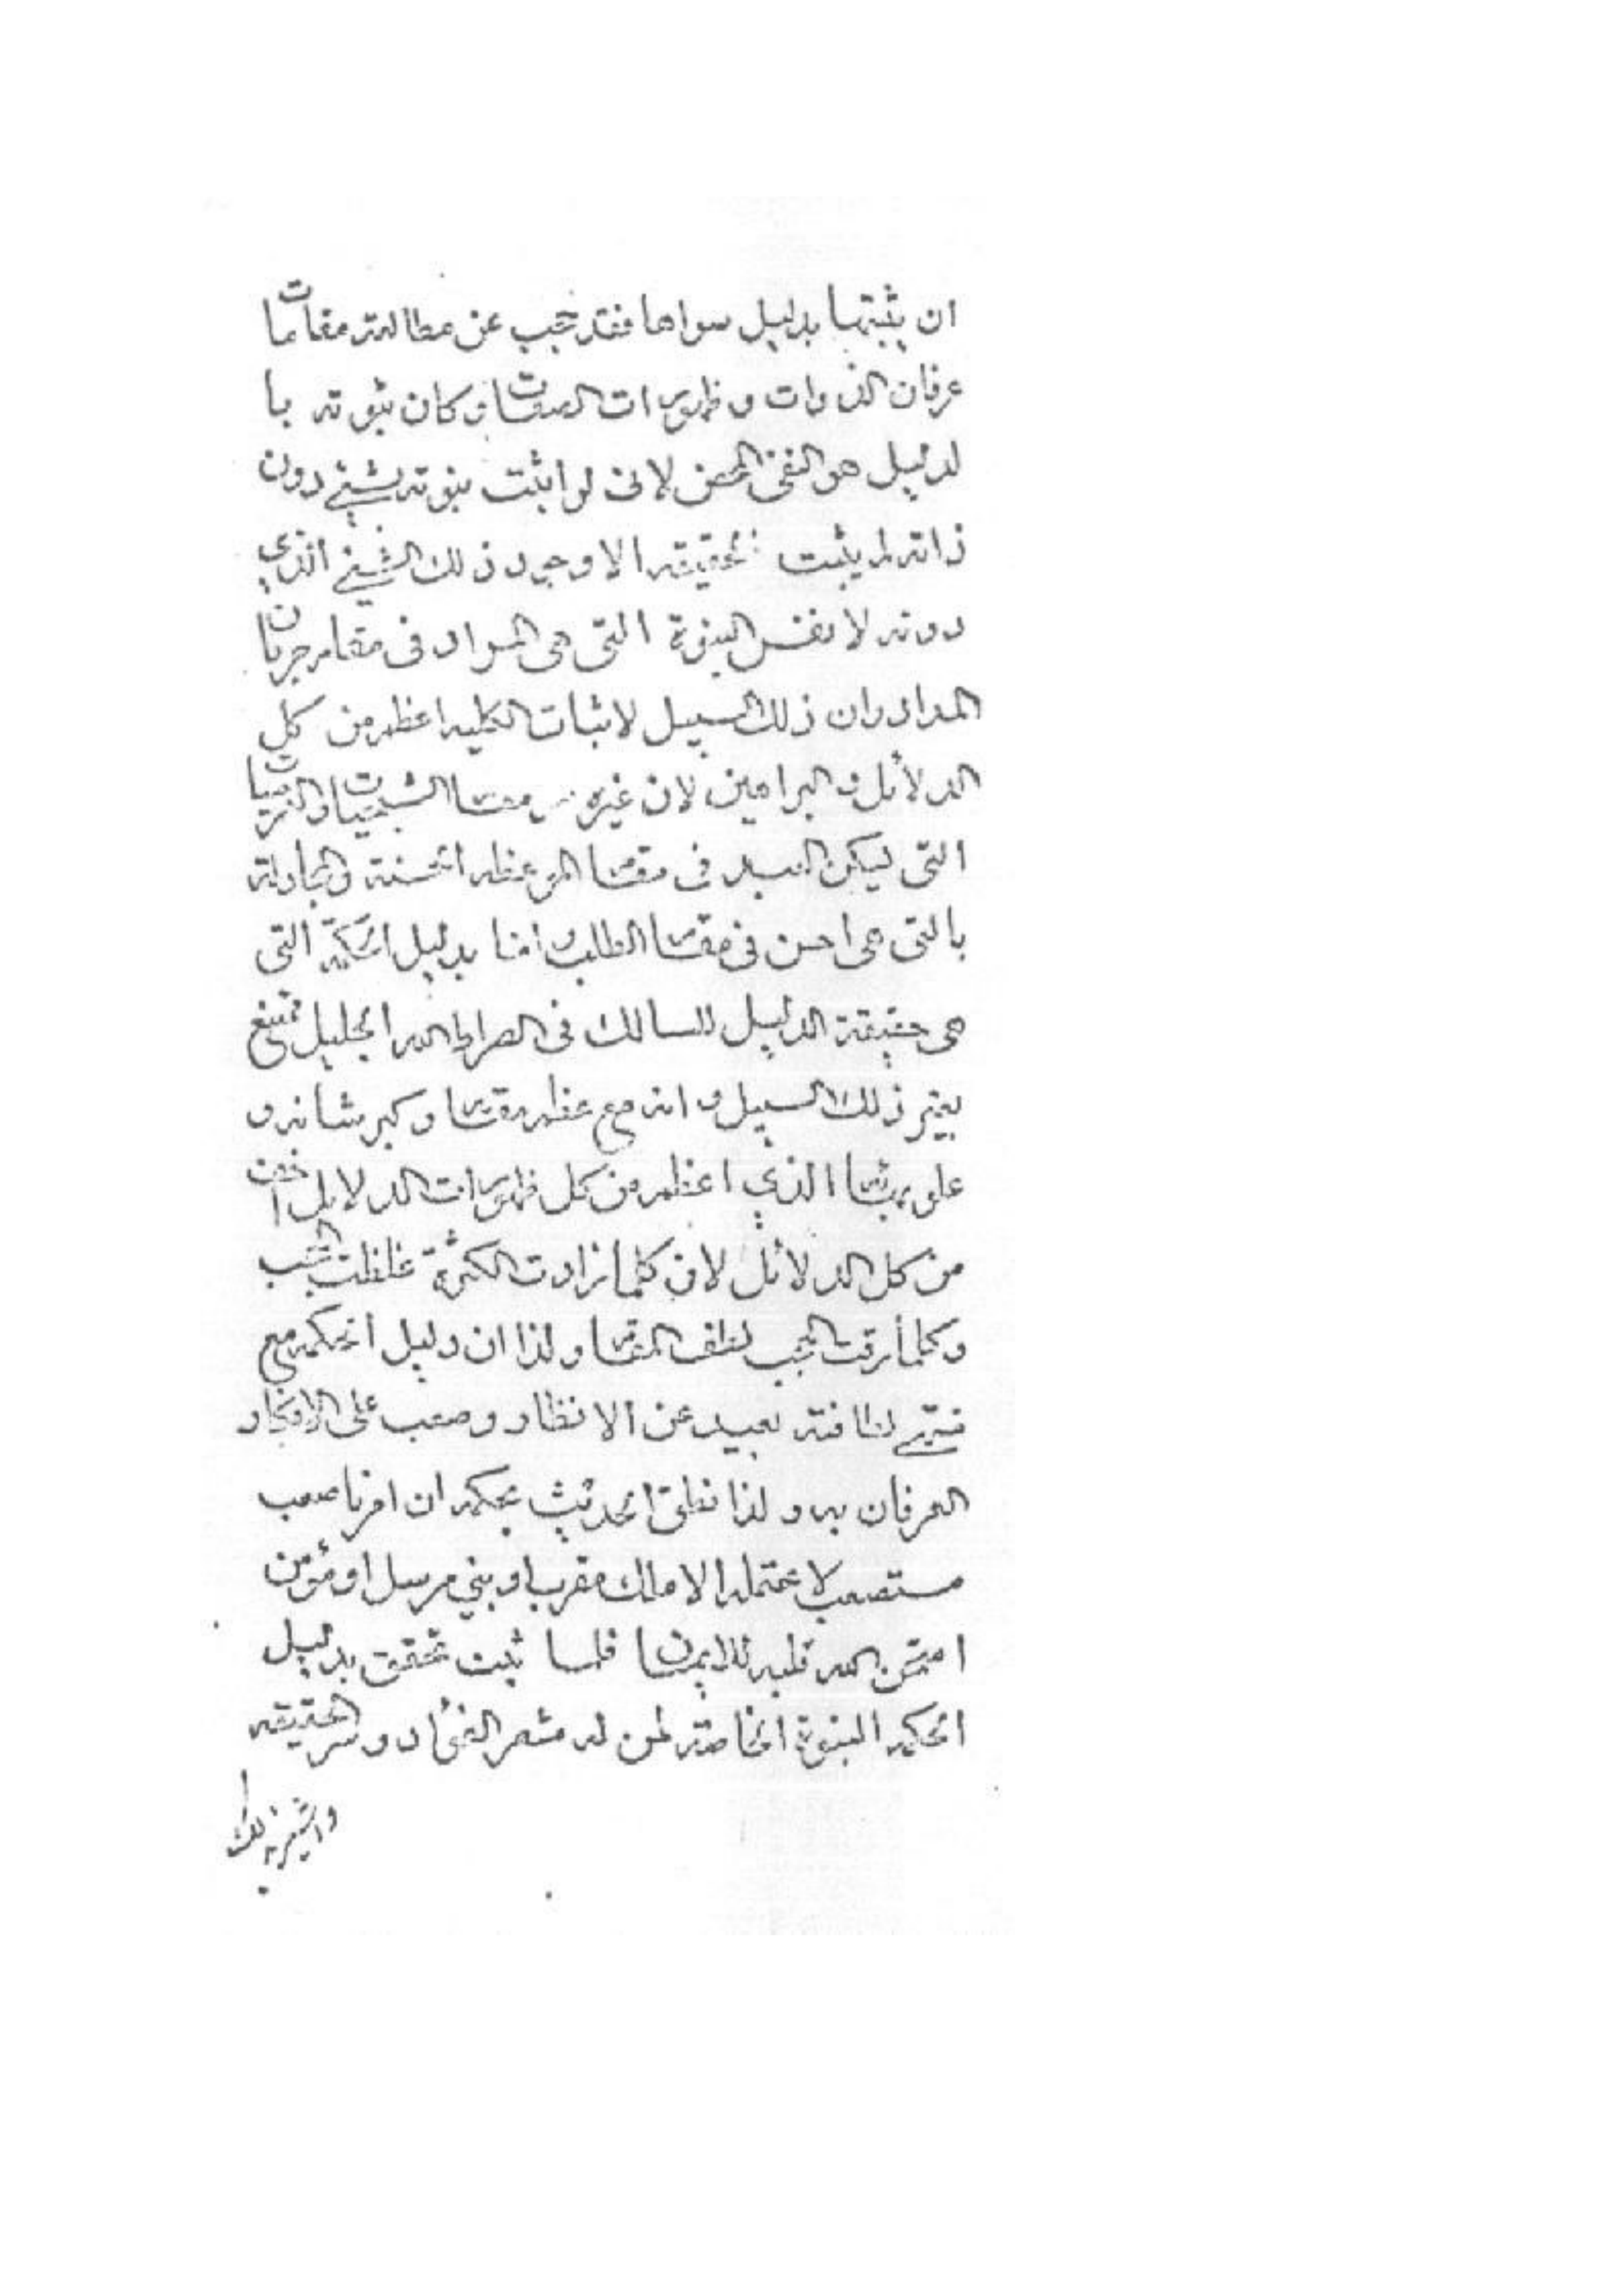 ان يثبتها بدليل سواها فقد حجب عن مطالعة مقامات
عرفان الذوات و ظهورات الصفات و كان ثبوته با
لدليل هو النفى المحض لانى لو اثبت بنوته بشيئ دون
ذاته لم يثبت بحقيقته الا وجود ذلك الشيئ الذي
دونه لا نفس النبوة التى هى المراد فى مقام جريان
المداد وان ذلك السبيل لاثبات الكليه اعظم من كل
الدلائل و البراهين لان غيره مقام الشبحيات و العرضيات
التى ليكن العبد فى مقام الموعظه الحسنة و المجادلة
بالتى هى احسن فى مقام الطلب و اما بدليل الحكمة التى
هى حقيقة الدليل للسالك فى الصراط الله الجليل ممتنع
بغير ذلك السبيل و انه مع عظم مقام و كبر شانه و
علو برهانه الذي اعظم من كل ظهورات الدلايل اخفى
من كل الدلائل لان كلما زادت الكثرة غلظت الحجب
و كلما رقت الحجب لطف المقام و لذا ان دليل الحكمه مع
منتهى لطافته بعيد عن الانظار و صعب على الافكار
العرفان به و لذا نطق الحديث بحكمه ان امرنا صعب
مستصعب لا يحتمله الا ملك مقرب او نبي مرسل او مؤمن
امتحن الله قلبه للايمان فلما ثبت تحقق بدليل
الحكمه النبوة الخاصة لمن له مشعر الفؤاد و سر الحقيقه
و اشير بذلك